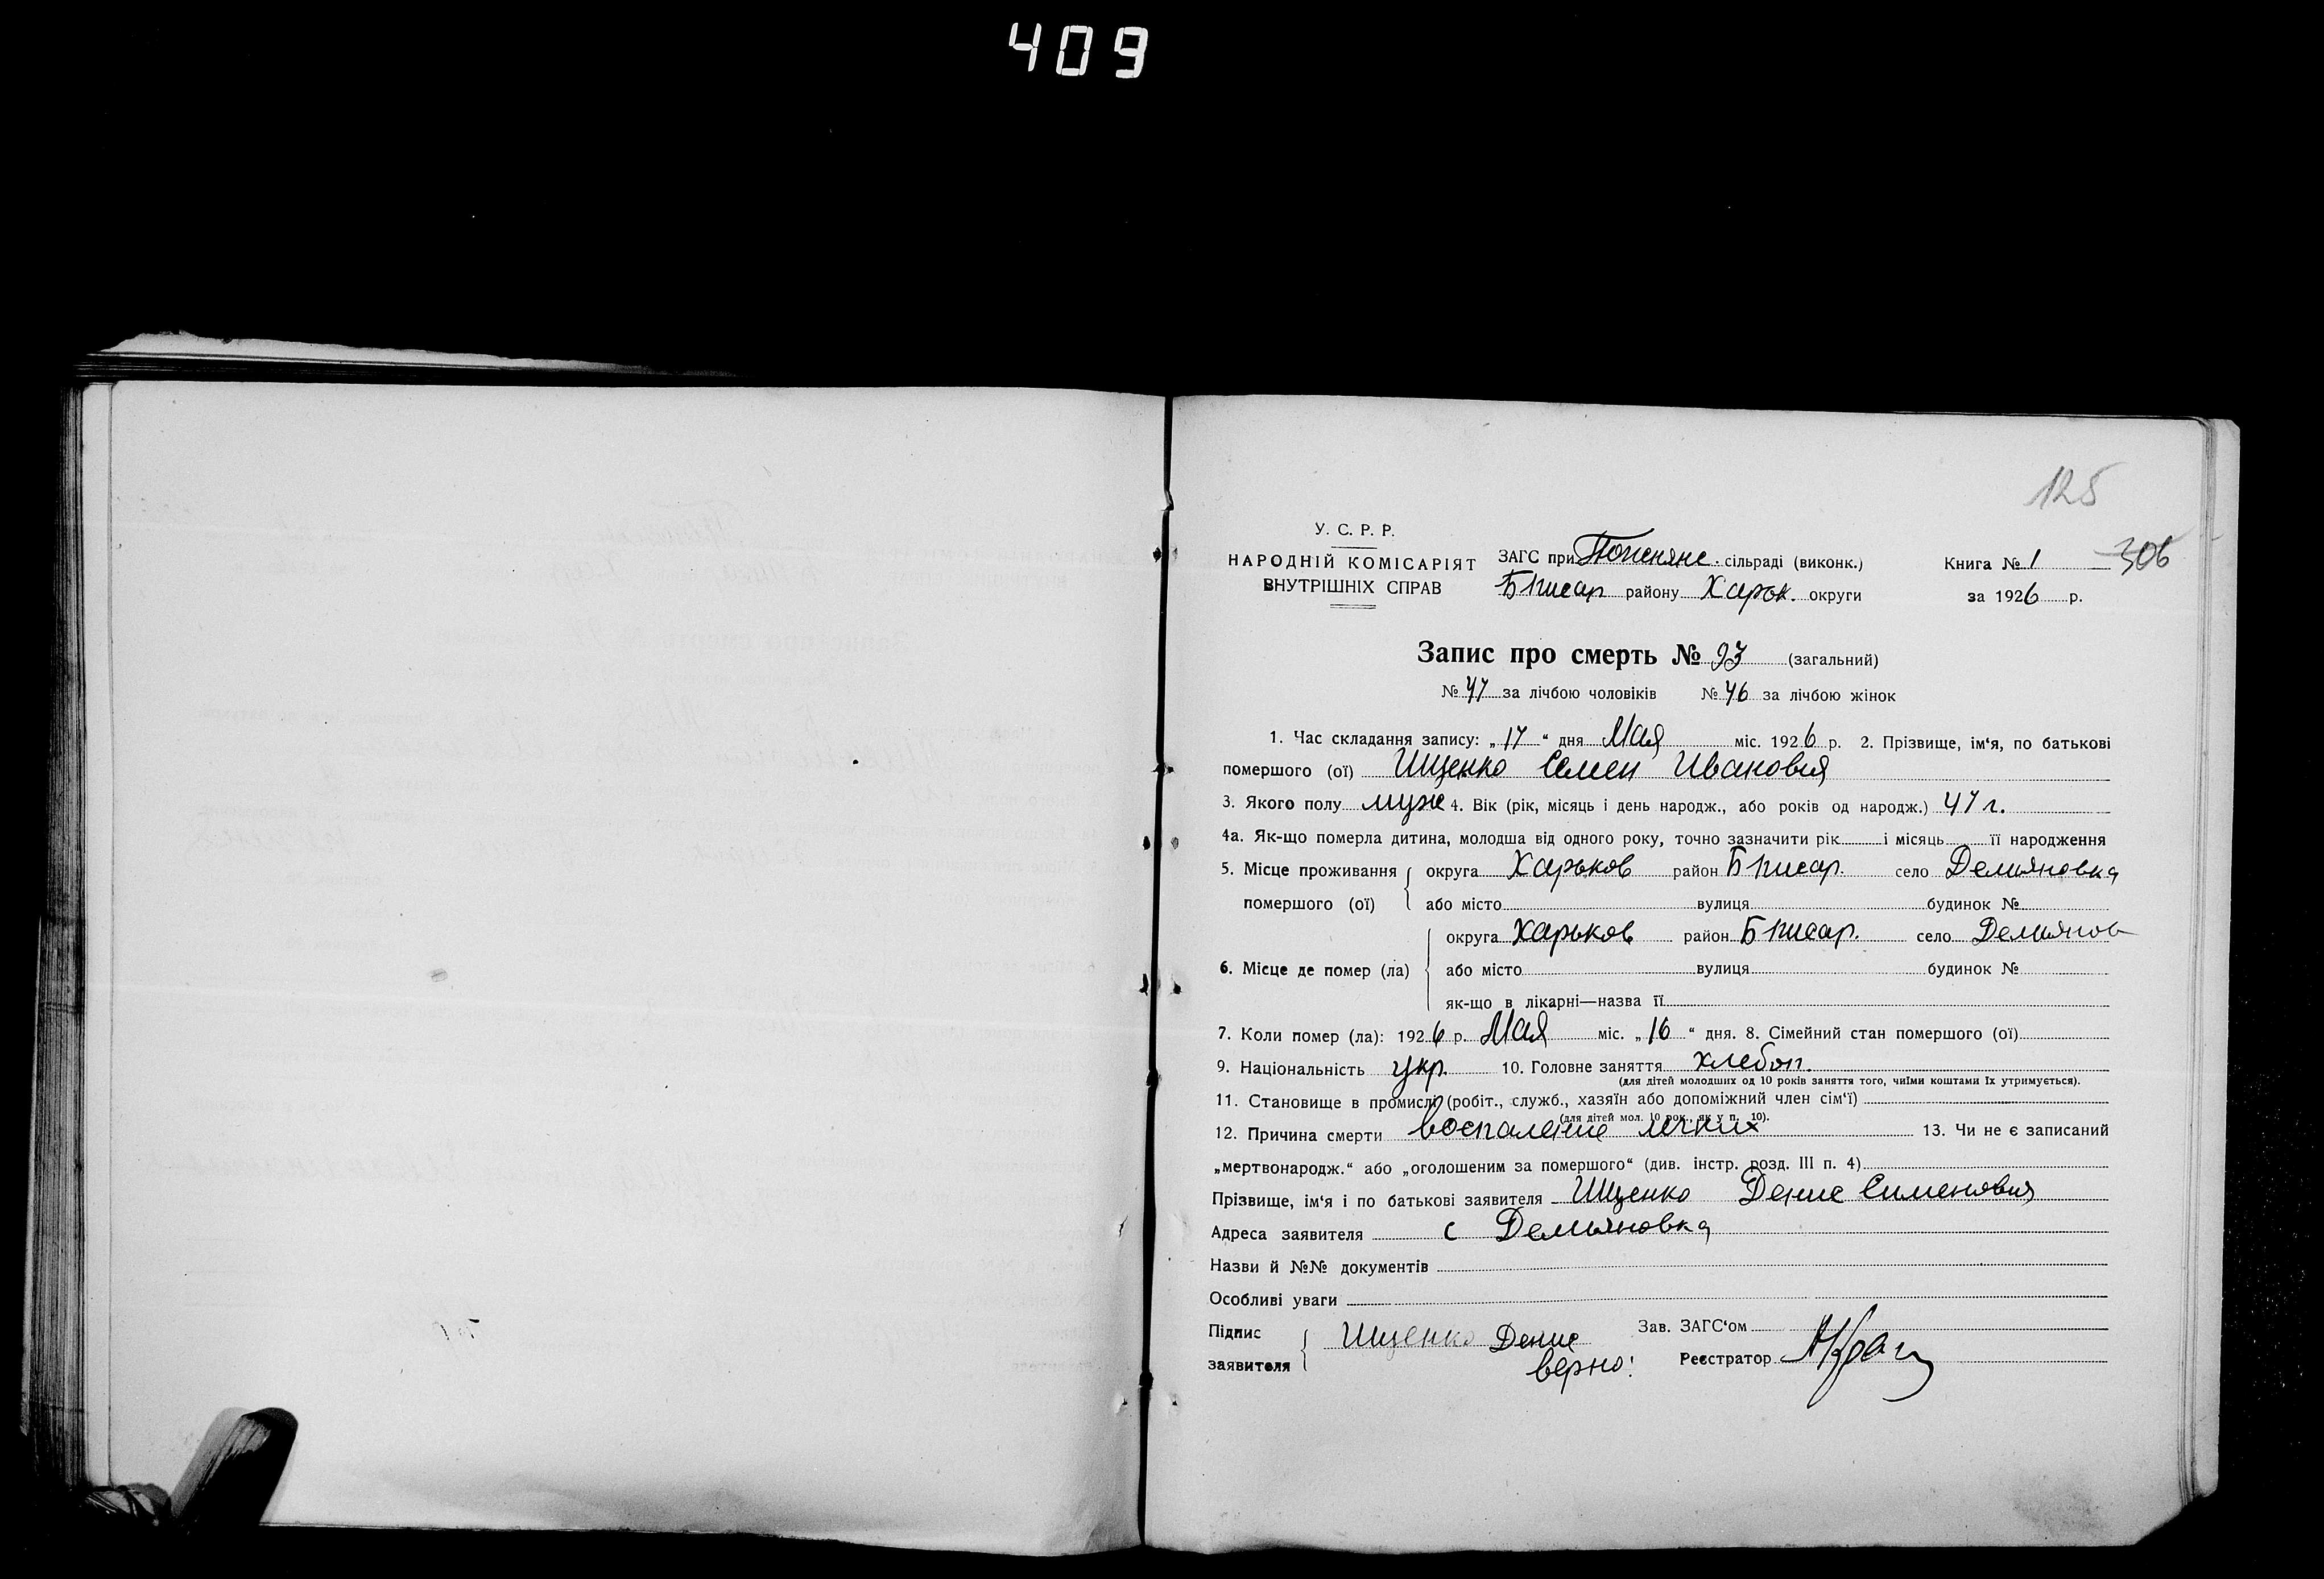 409
125
У. С. Р. Р.
НАРОДНІЙ КОМІСАРІЯТ
ВНУТРІШНІХ СПРАВ
ЗАГС при сільраді (виконк.)
Б Писар району Харьк. округи
Книга № 1 306
за 1926 р.
Запис про смерть № 93 (загальний)
№ 47 за лічбою чоловіків № 46 за лічбою жінок
1. Час складання запису: „17“ дня Мая міс. 1926 р. 2. Прізвище, ім'я, по батькові
помершого (ої) Ищенко Семен Иванович
3. Якого полу муж 4. Вік (рік, місяць і день народж., або років од народж.) 47 г.
4а. Як-що померла дитина, молодша від одного року, точно зазначити рік і місяць її народження
5. Місце проживання округа Харьков район Б Писар. село Демьяновка
помершого (ої) або місто вулиця будинок №
округа Харьков район Б Писар. село Демьянов
6. Місце де помер (ла) або місто вулиця будинок №
як-що в лікарні—назва її
7. Коли помер (ла): 1926 р. Мая міс. „16“ дня. 8. Сімейний стан помершого (ої)
9. Національність укр. 10. Головне заняття хлебоп.
(для дітей молодших од 10 років заняття того, чиїми коштами їх утримується).
11. Становище в промислі (робіт., служб., хазяїн або допоміжний член сім'ї)
(для дітей мол. 10 рок., як у п. 10).
12. Причина смерти воспаление лечких 13. Чи не є записаний
„мертвонародж.“ або „оголошеним за помершого“ (див. інстр. розд. III п. 4)
Прізвище, ім'я і по батькові заявителя Ищенко Денис Сименович
Адреса заявителя с Демьяновка
Назви й №№ документів
Особливі уваги
Підпис Ищенко Денис Зав. ЗАГС'ом
заявителя верно! Реєстратор